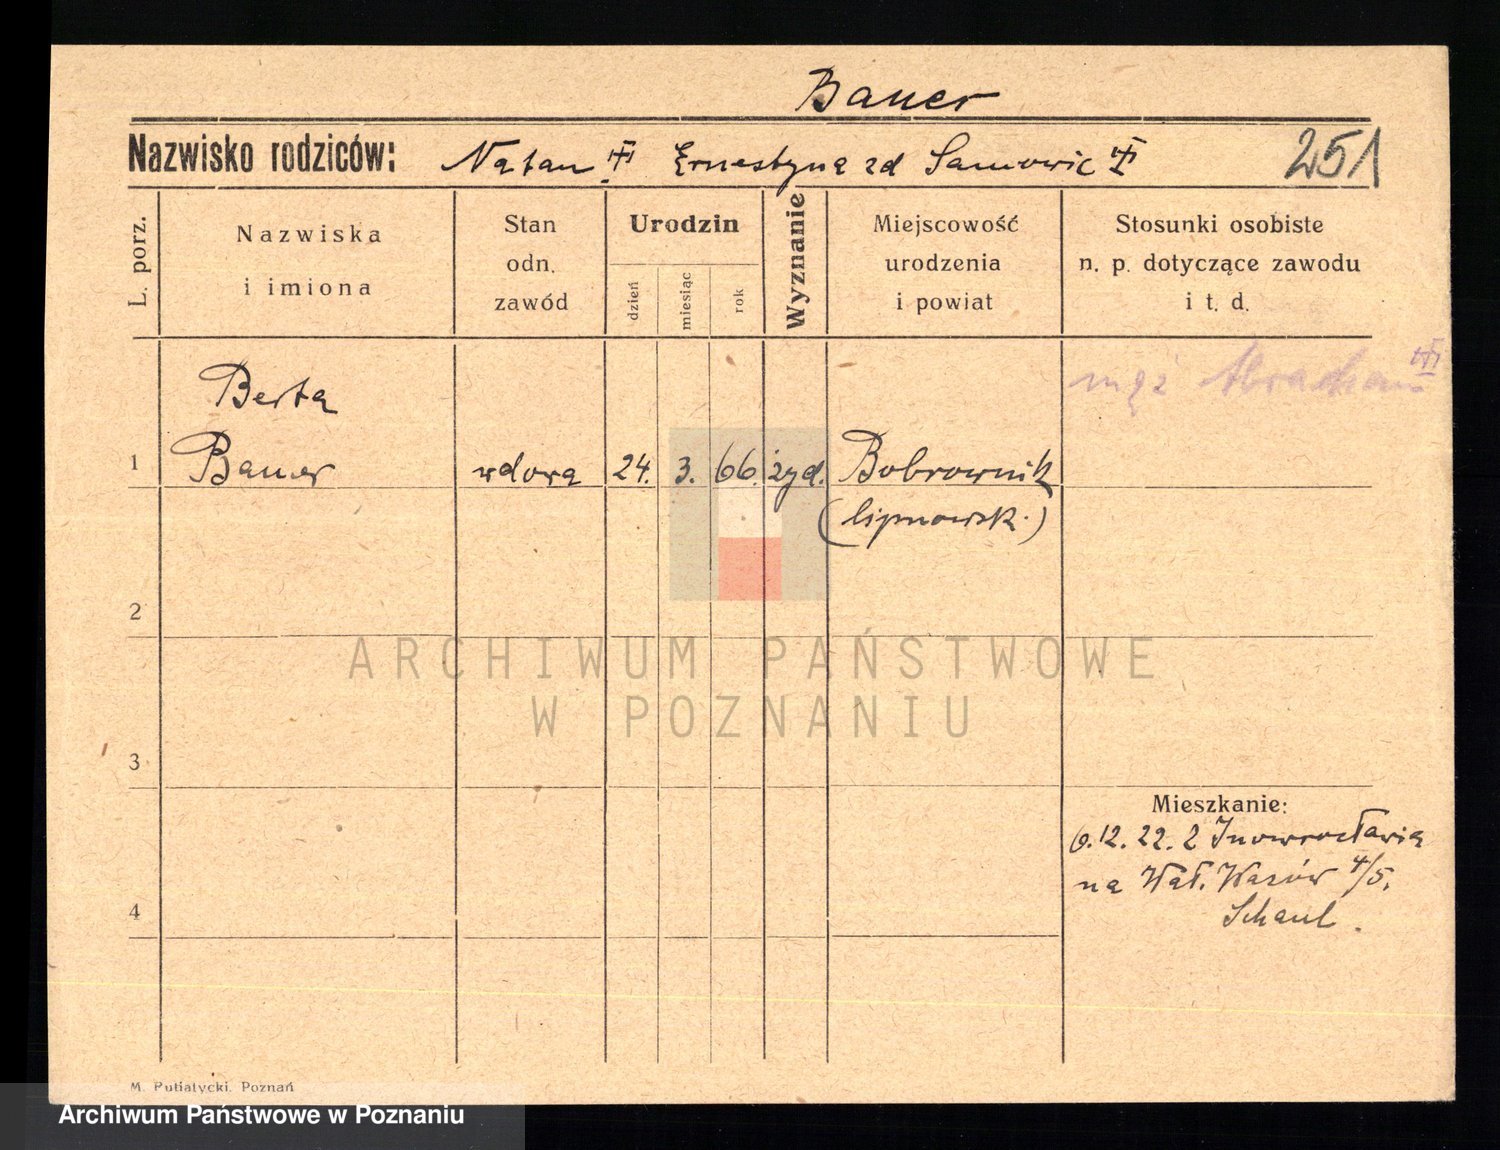 Bauer
Nazwisko rodziców: Natan Ernestyna zd Samowic
251
L. porz.
Nazwiska
i imiona
Stan
odn.
zawód
Urodzin
dzień
miesiąc
rok
Wyznanie
Miejscowość
urodzenia
i powiat
Stosunki osobiste
n. p. dotyczące zawodu
i t. d.
mąż Abraham
Berta
1 Bauer wdowa 24. 3. 66. żyd. Bobrownik
(lipnowsk.)
2
ARCHIWUM PAŃSTWOWE
W POZNANIU
3
Mieszkanie:
6.12.22. z Inowrocławia
na Wał. Wazów 4/5.
4
Schaul.
M. Putiatycki, Poznań
Archiwum Państwowe w Poznaniu